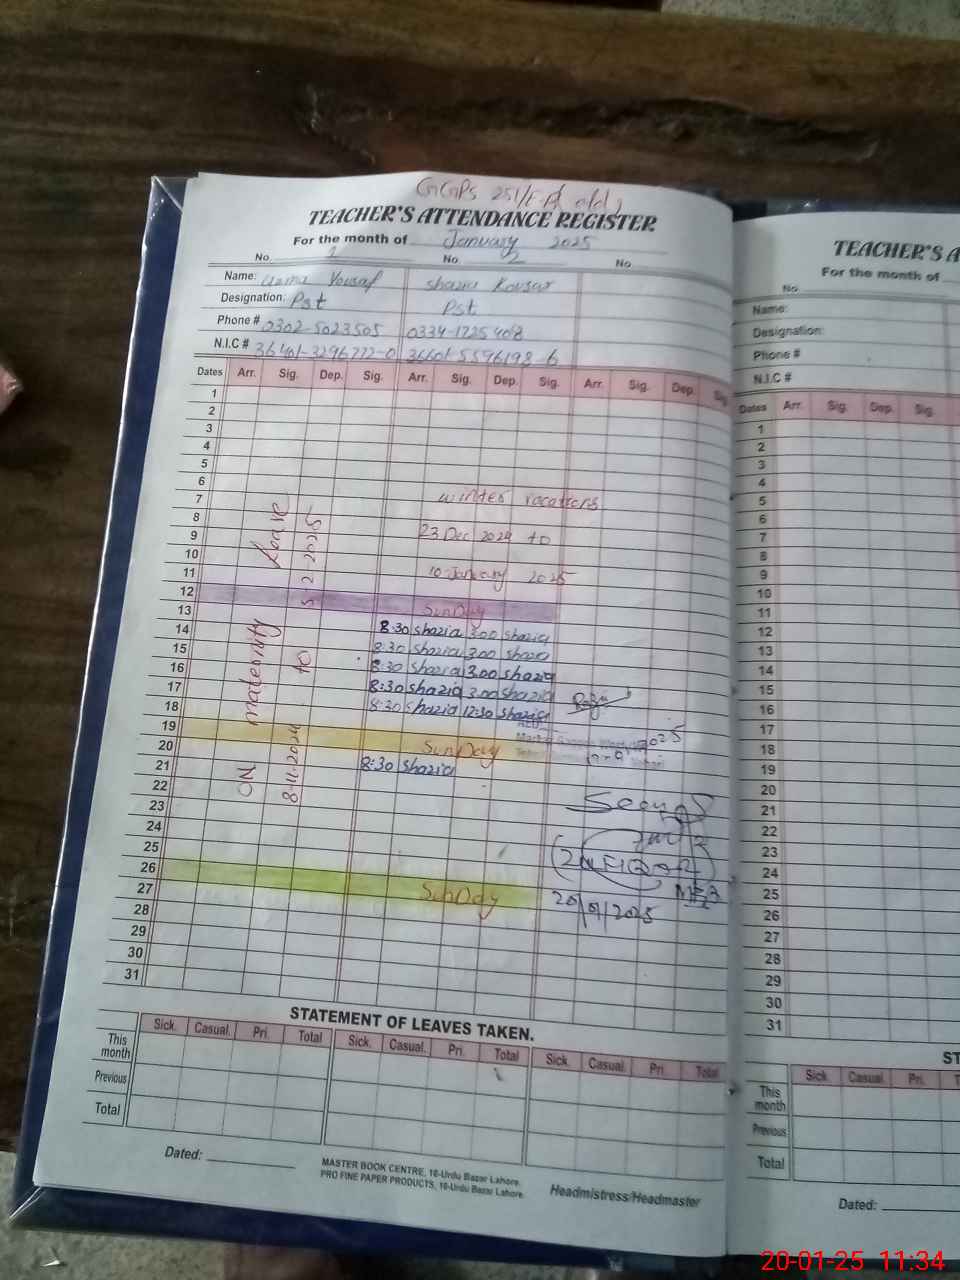 GGPS 251/E.B old
TEACHER'S ATTENDANCE REGISTER
For the month of January 2025
No. 1 No. 2 No.
Name: Yousaf Shazia Kousar
Designation: Pst Pst
Phone # 0302-5023505 0334-1725408
N.I.C # 36401-3296772-0 36601 5596198-6
Dates Arr. Sig. Dep. Sig. Arr. Sig. Dep. Sig. Arr. Sig. Dep. Sig.
1
2
3
4
5
6
7 winter vacations
8
9 23 Dec 2024 to
10
11 10 January 2025
12
13 SunDay
14 8:30 Shazia 3.00 Shazia
15 8:30 Shazia 3.00 Shazia
16 8:30 Shazia 3.00 Shazia
17 8:30 Shazia 3.00 Shazia
18 8:30 Shazia 12:30 Shazia
19
20 SunDay
21 8:30 Shazia
22
23
24
25
26
27 SunDay
28
29
30
31
ON maternity Leave
8-11-2024 to 5 2 2025
AEO
2025
MEA
STATEMENT OF LEAVES TAKEN.
Sick. Casual. Pri. Total Sick. Casual. Pri. Total Sick. Casual. Pri. Total
This month
Previous
Total
Dated:
MASTER BOOK CENTRE, 16-Urdu Bazar Lahore.
PRO FINE PAPER PRODUCTS, 16-Urdu Bazar Lahore.
Headmistress/Headmaster
TEACHER'S A
For the month of
No.
Name:
Designation:
Phone #
N.I.C #
Dates Arr. Sig. Dep. Sig.
1
2
3
4
5
6
7
8
9
10
11
12
13
14
15
16
17
18
19
20
21
22
23
24
25
26
27
28
29
30
31
ST
Sick Casual. Pri.
This month
Previous
Total
Dated:
20-01-25 11:34